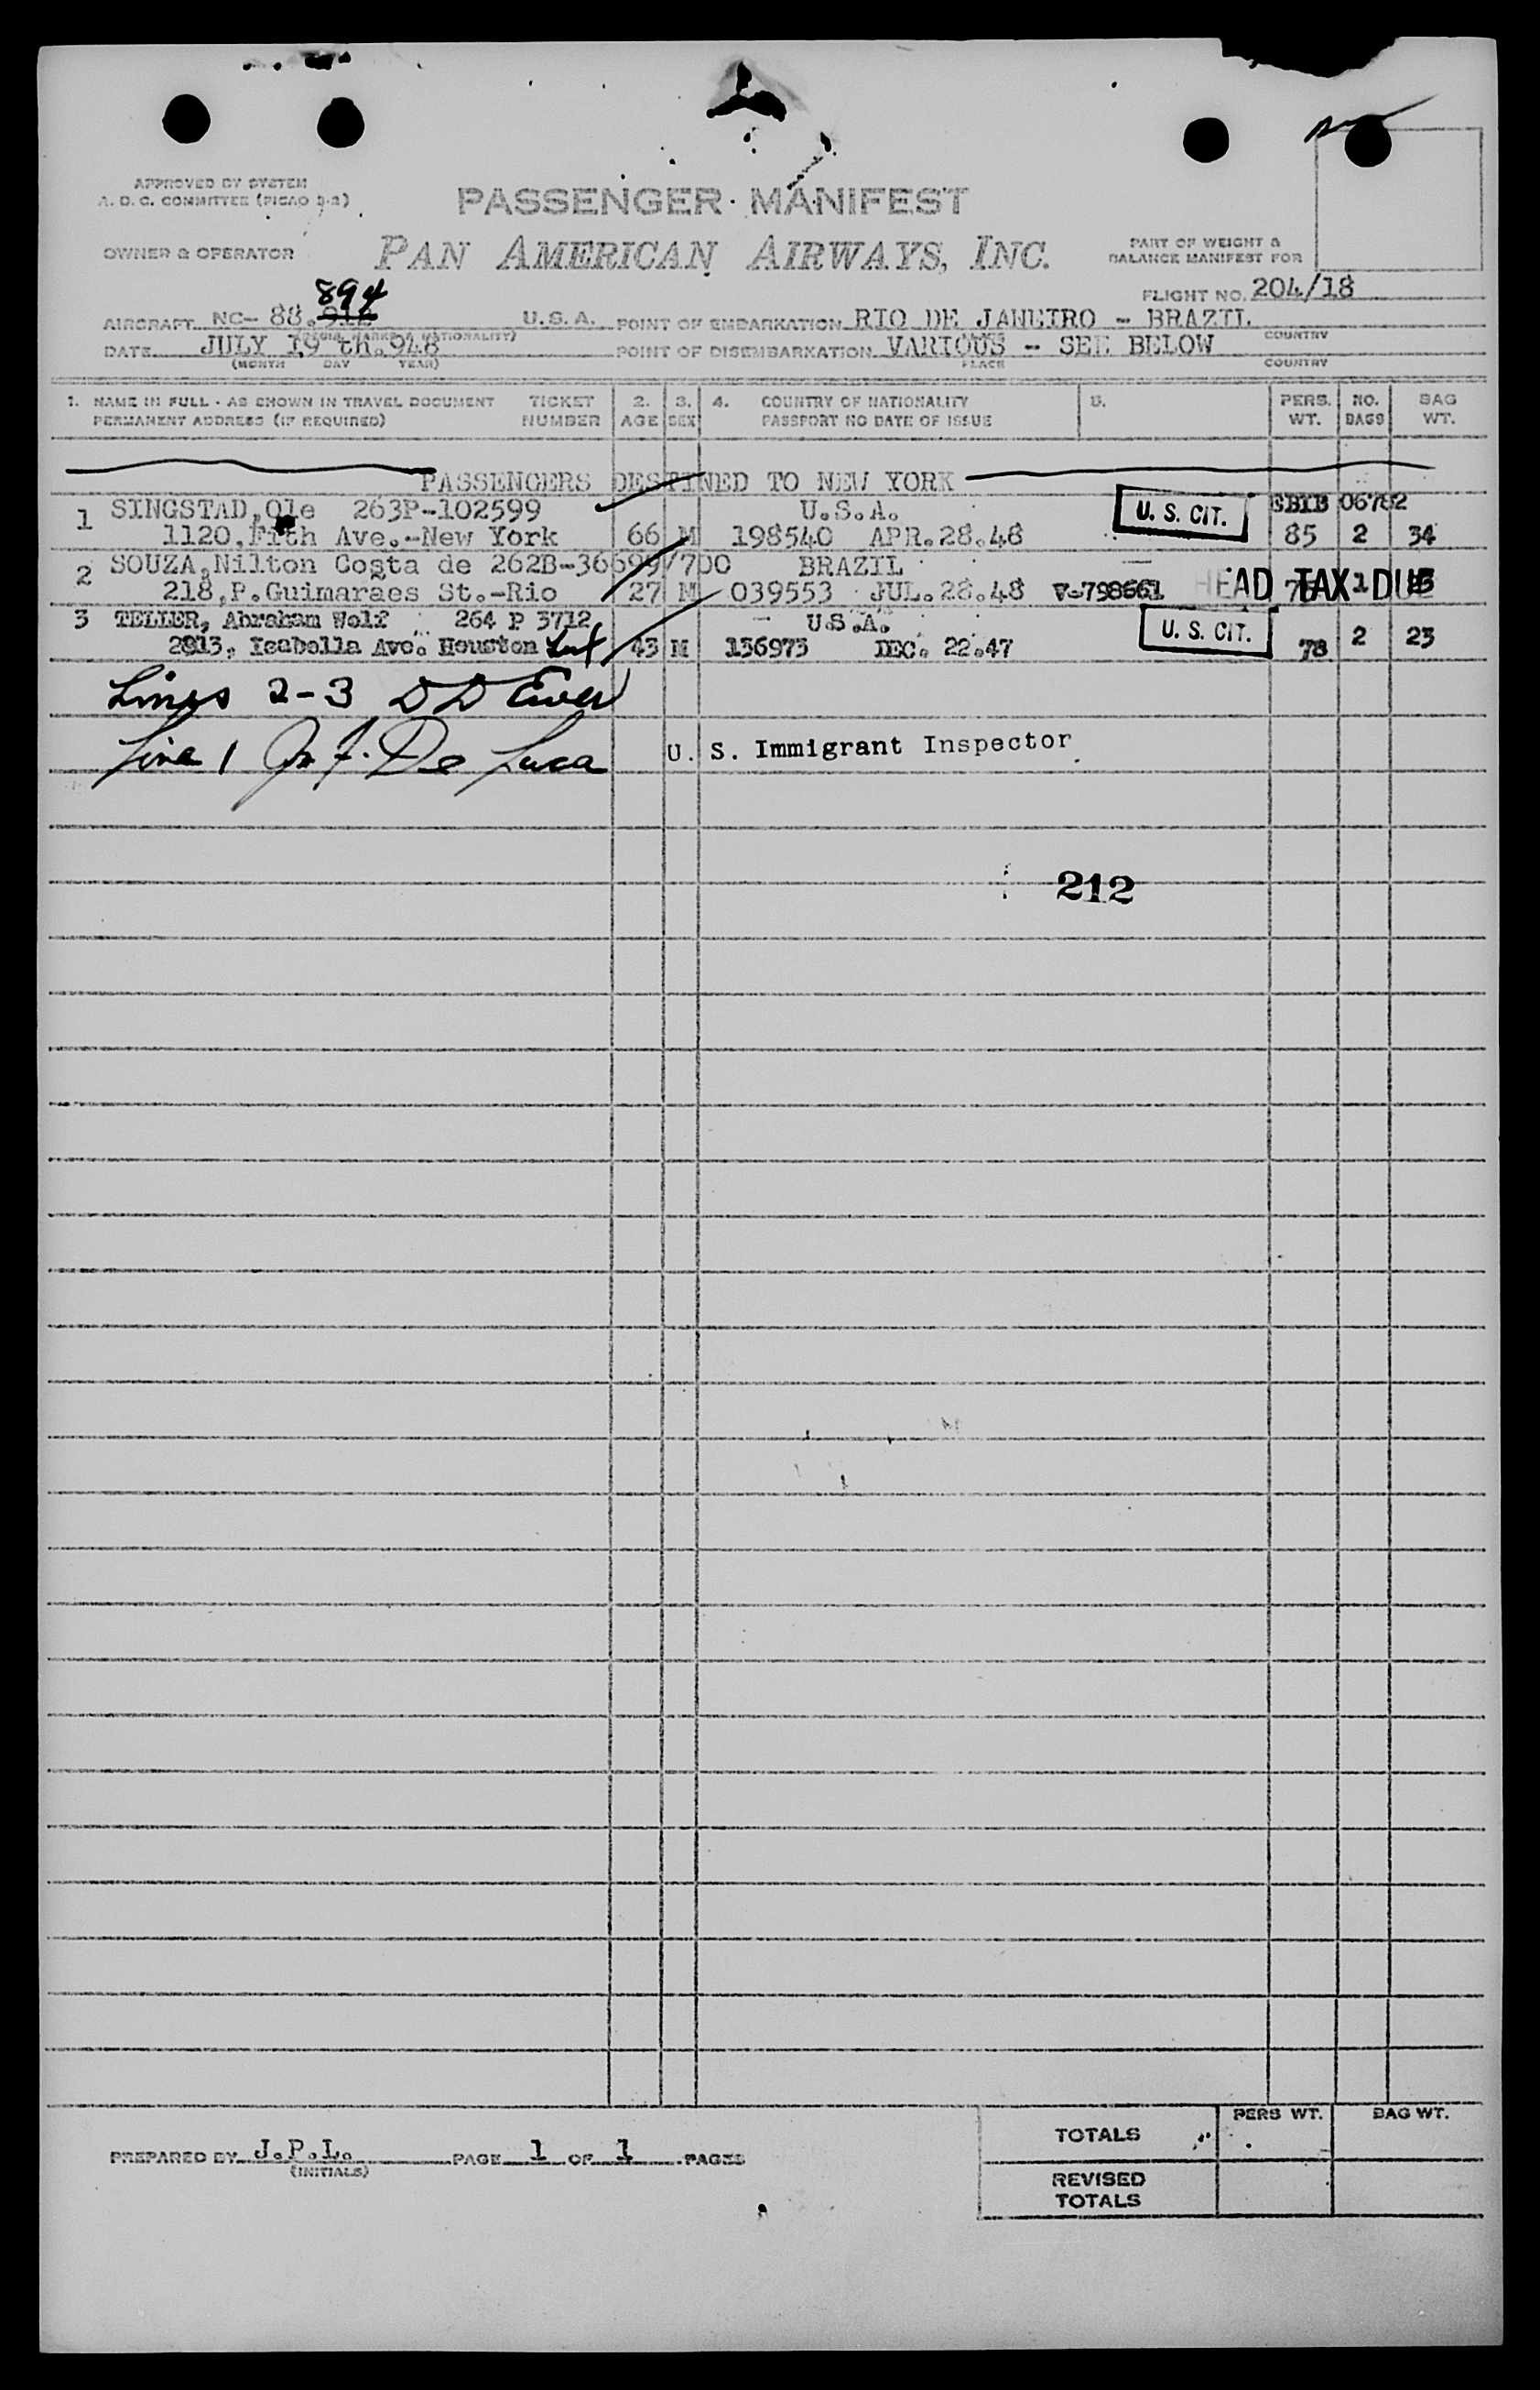 APPROVED BY SYSTEM
A. D. C. COMMITTEE (PICAO 9-2)
PASSENGER MANIFEST
OWNER & OPERATOR PAN AMERICAN AIRWAYS, INC.
PART OF WEIGHT &
BALANCE MANIFEST FOR
FLIGHT NO. 204/18
894
AIRCRAFT NC- 88.912 U.S.A. POINT OF EMBARKATION RIO DE JANEIRO - BRAZIL
COUNTRY
DATE JULY 19 th.948 POINT OF DISEMBARKATION VARIOUS - SEE BELOW
(MONTH DAY YEAR) PLACE COUNTRY
1. NAME IN FULL - AS SHOWN IN TRAVEL DOCUMENT TICKET 2. 3. 4. COUNTRY OF NATIONALITY 5. PERS. NO. BAG
PERMANENT ADDRESS (IF REQUIRED) NUMBER AGE SEX PASSPORT NO DATE OF ISSUE WT. BAGS WT.
PASSENGERS DESTINED TO NEW YORK
1 SINGSTAD,Ole 263P-102599 U.S.A. U. S. CIT. 06782
1120,Fith Ave.-New York 66 M 198540 APR.28.48 85 2 34
2 SOUZA,Nilton Costa de 262B-36699/700 BRAZIL
218,P.Guimarães St.-Rio 27 M 039553 JUL.28.48 V-798661 HEAD TAX DUE 1
3 TELLER, Abraham Wolf 264 P 3712 - U.S.A. U. S. CIT.
2813, Isabella Ave. Houston 43 M 136973 DEC. 22.47 78 2 23
Lines 2-3 D D
Line 1 De Luca U. S. Immigrant Inspector
212
TOTALS PERS WT. BAG WT.
PREPARED BY J.P.L. PAGE 1 OF 1 PAGES
(INITIALS)
REVISED
TOTALS